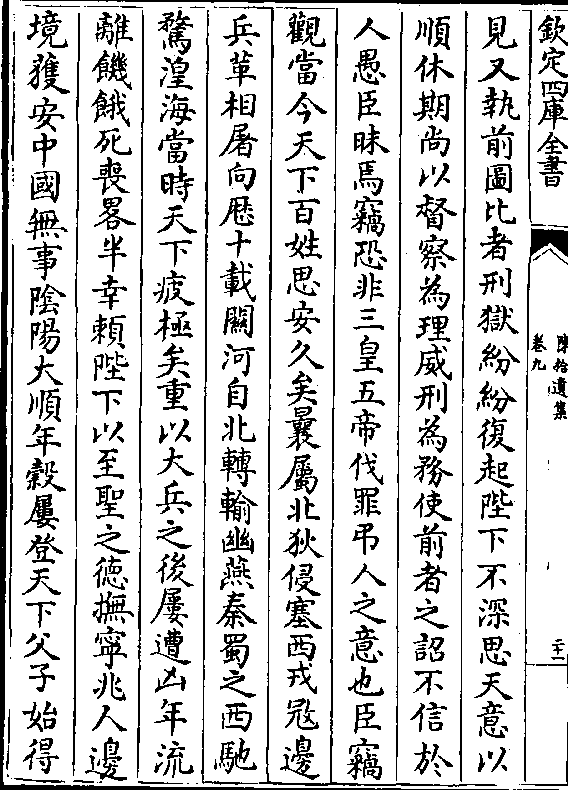 欽定四庫全書
陳拾遺集
卷九
二十一
見又執前圖比者刑獄紛紛復起陛下不深思天意以
順休期尚以督察為理威刑為務使前者之詔不信於
人愚臣昧焉竊恐非三皇五帝伐罪弔人之意也臣竊
觀當今天下百姓思安久矣曩屬北狄侵塞西戎冦邊
兵革相屠向歴十載關河自北轉輸幽燕秦蜀之西馳
騖湟海當時天下疲極矣重以大兵之後屢遭凶年流
離饑餓死喪畧半幸賴陛下以至聖之徳撫寧兆人邊
境獲安中國無事陰陽大順年穀屢登天下父子始得